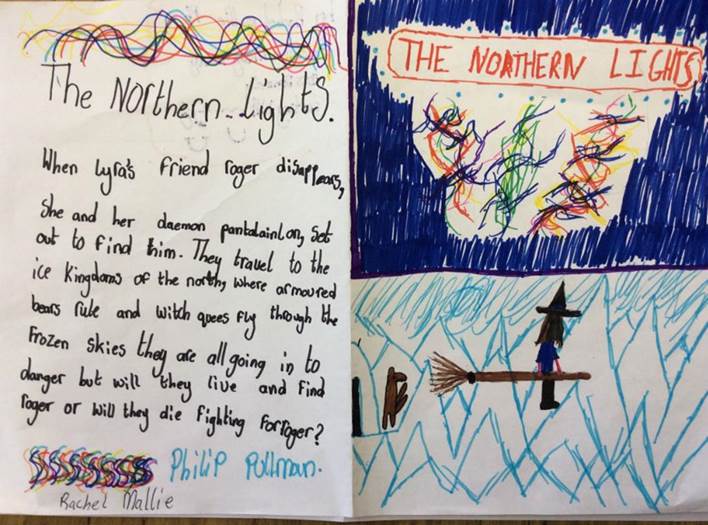 The Northern.. Lights.
When lyra's friend roger disappears,
She and her daemon pantalainlon, set
out to find him. They travel to the
ice kingdoms of the north, where armoured
bears rule and witch qees fly through the
frozen skies they are all going in to
danger but will they live and find
roger or will they die fighting forroger?
Philip Pullman.
Rachel Mallie
THE NORTHERN LIGHTS